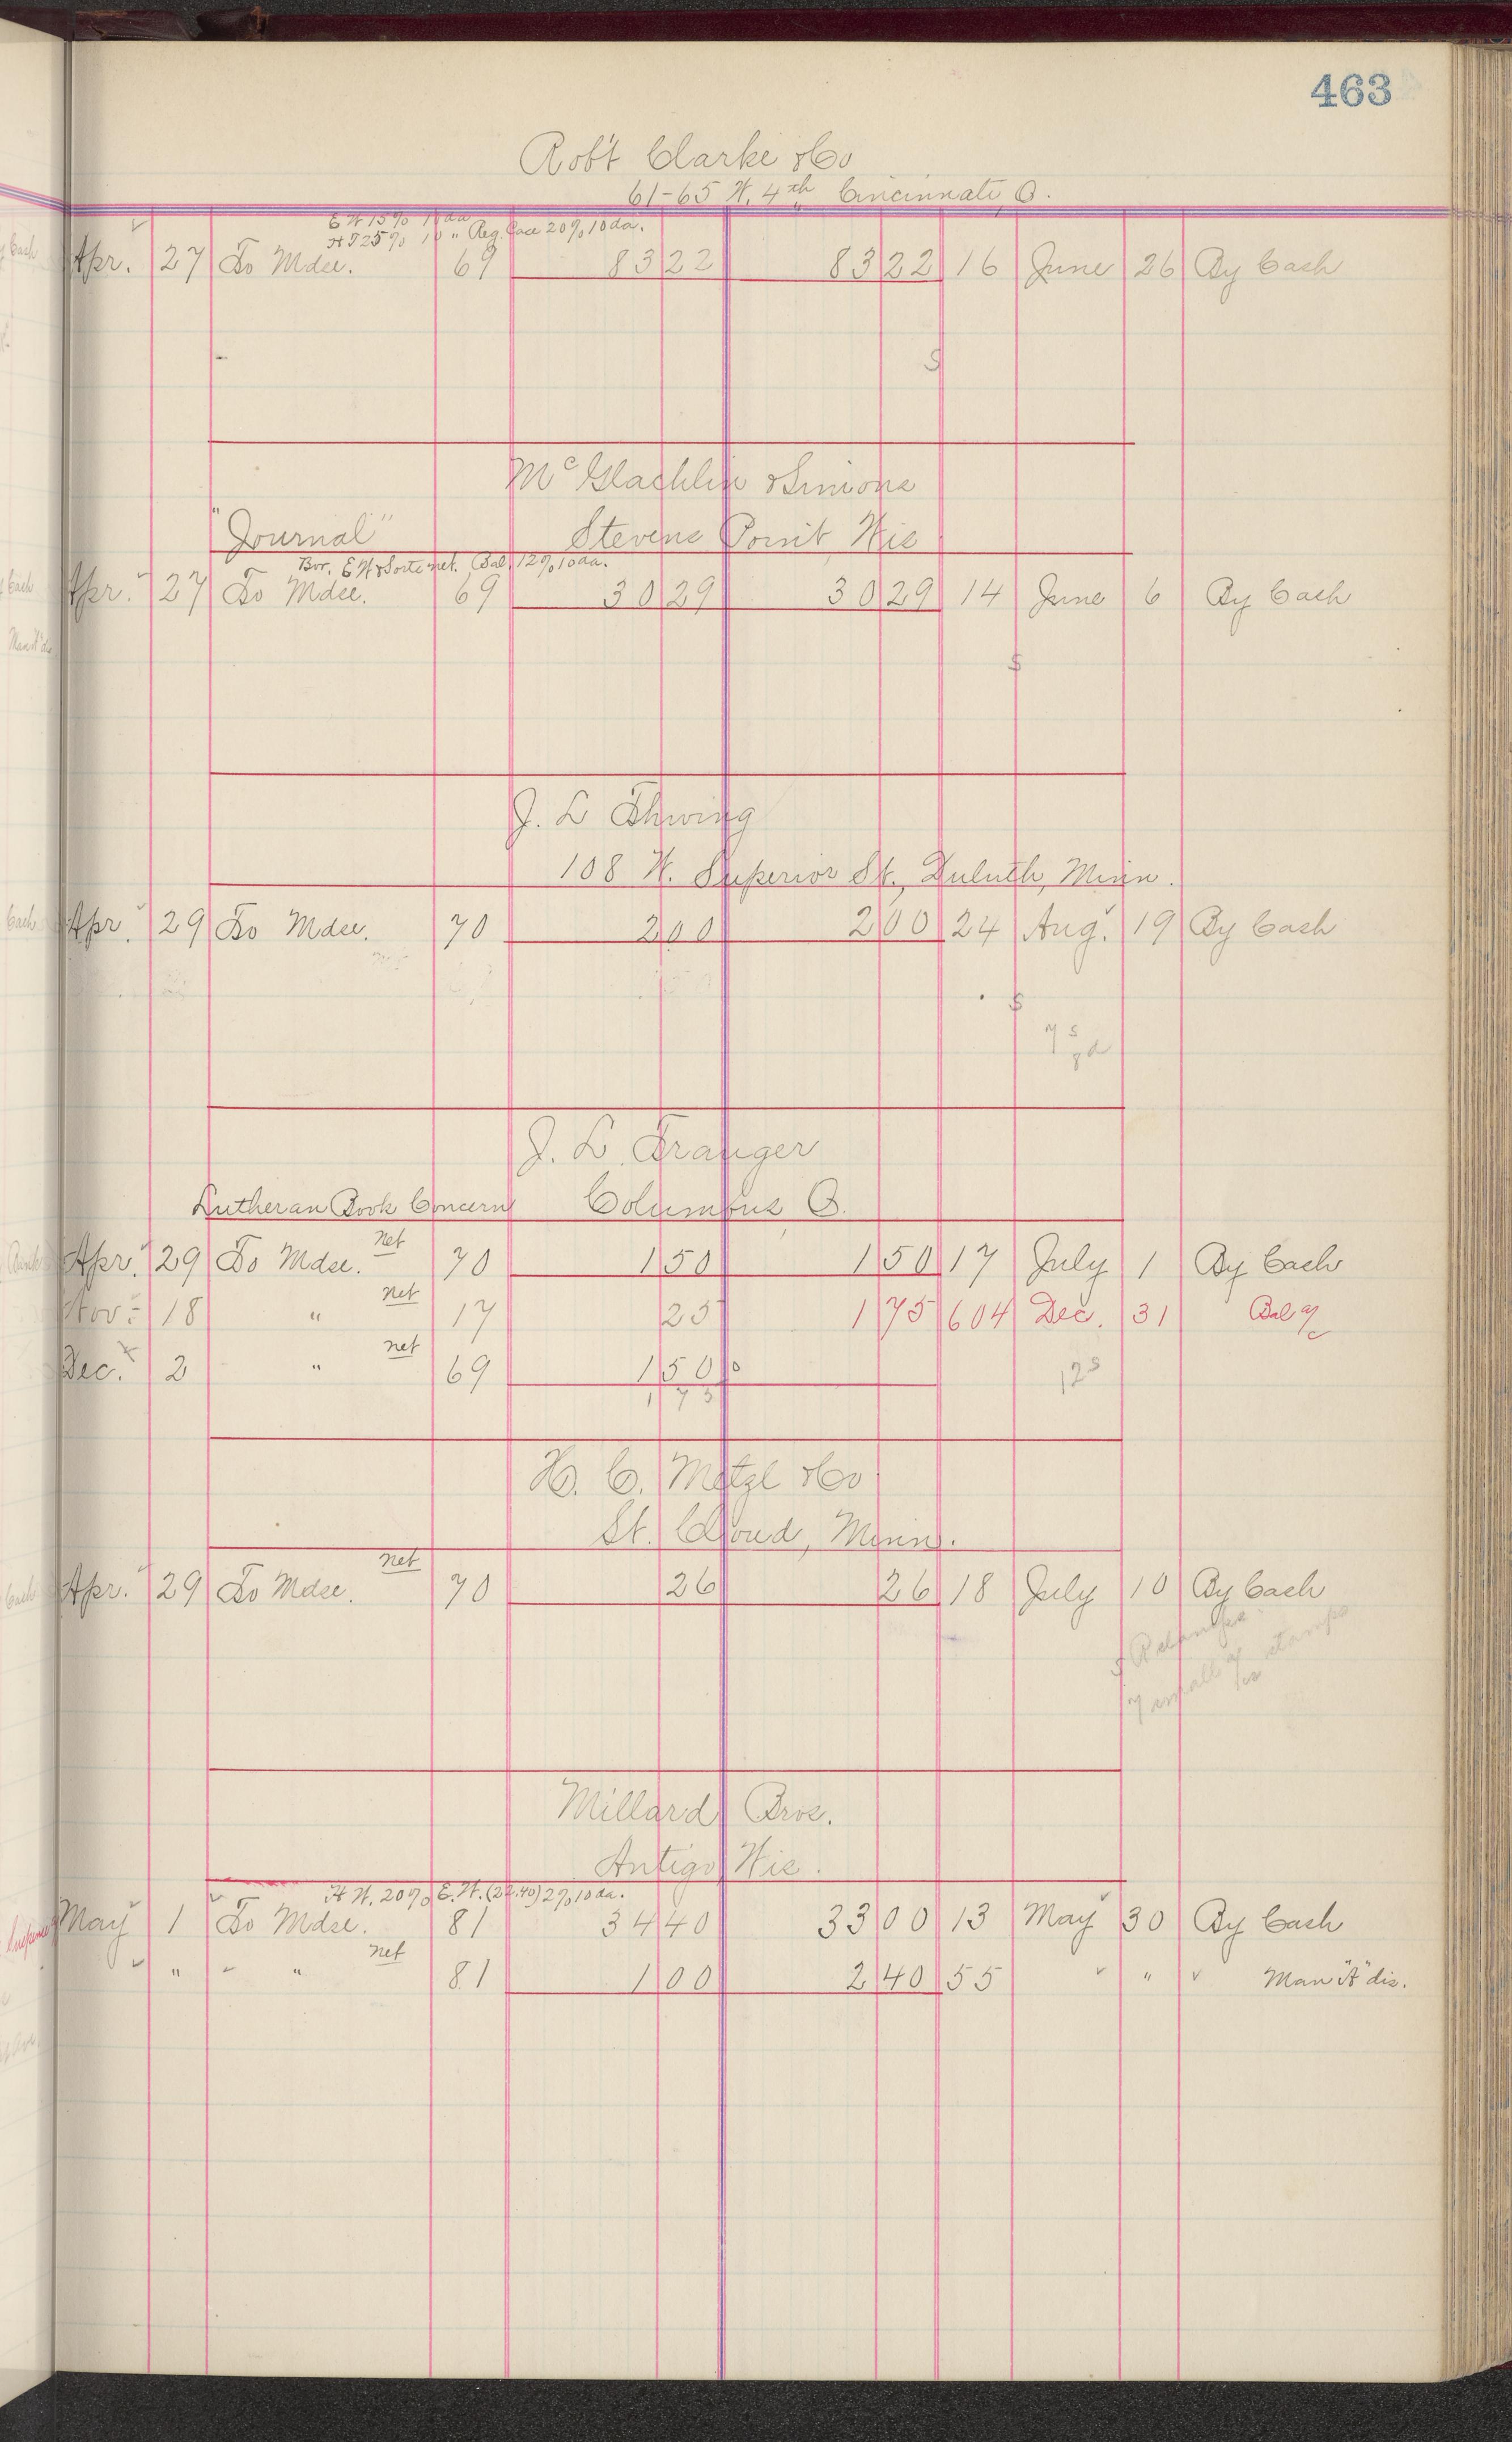 463
Rob't Clarke & Co
61-65 W. 4th Cincinnati, O.
E W 15% 10 da
H T 25% 10 " Reg. Case 20% 10 da.
Apr. 27 To Mdse. 69 83 22 83 22 16 June 26 By Cash
S
McGlachlin & Simons
"Journal" Stevens Point, Wis
Bor. E W & Sorts net. Bal. 12% 10 da.
Apr. 27 To Mdse. 69 30 29 30 29 14 June 6 By Cash
S
J. L Thwing
108 W. Superior St., Duluth, Minn.
Apr. 29 To Mdse. 70 2 00 2 00 24 Aug. 19 By Cash
S
J. L. Trauger
Lutheran Book Concern Columbus O.
Apr. 29 To Mdse. net 70 1 50 1 50 17 July 1 By Cash
Nov. 18 " net 17 25 1 75 604 Dec. 31 Bal %
Dec. 2 " net 69 1 50
1 75
H. C. Metzl & Co
St. Cloud, Minn.
Apr. 29 To Mdse. net 70 26 26 18 July 10 By Cash
stamps
Millard Bros.
Antigo Wis.
H W. 20% E. W. (22.40) 2% 10 da.
May 1 To Mdse. 81 34 40 33 00 13 May 30 By Cash
" " " net 81 1 00 2 40 55 " " Man "A" dis.